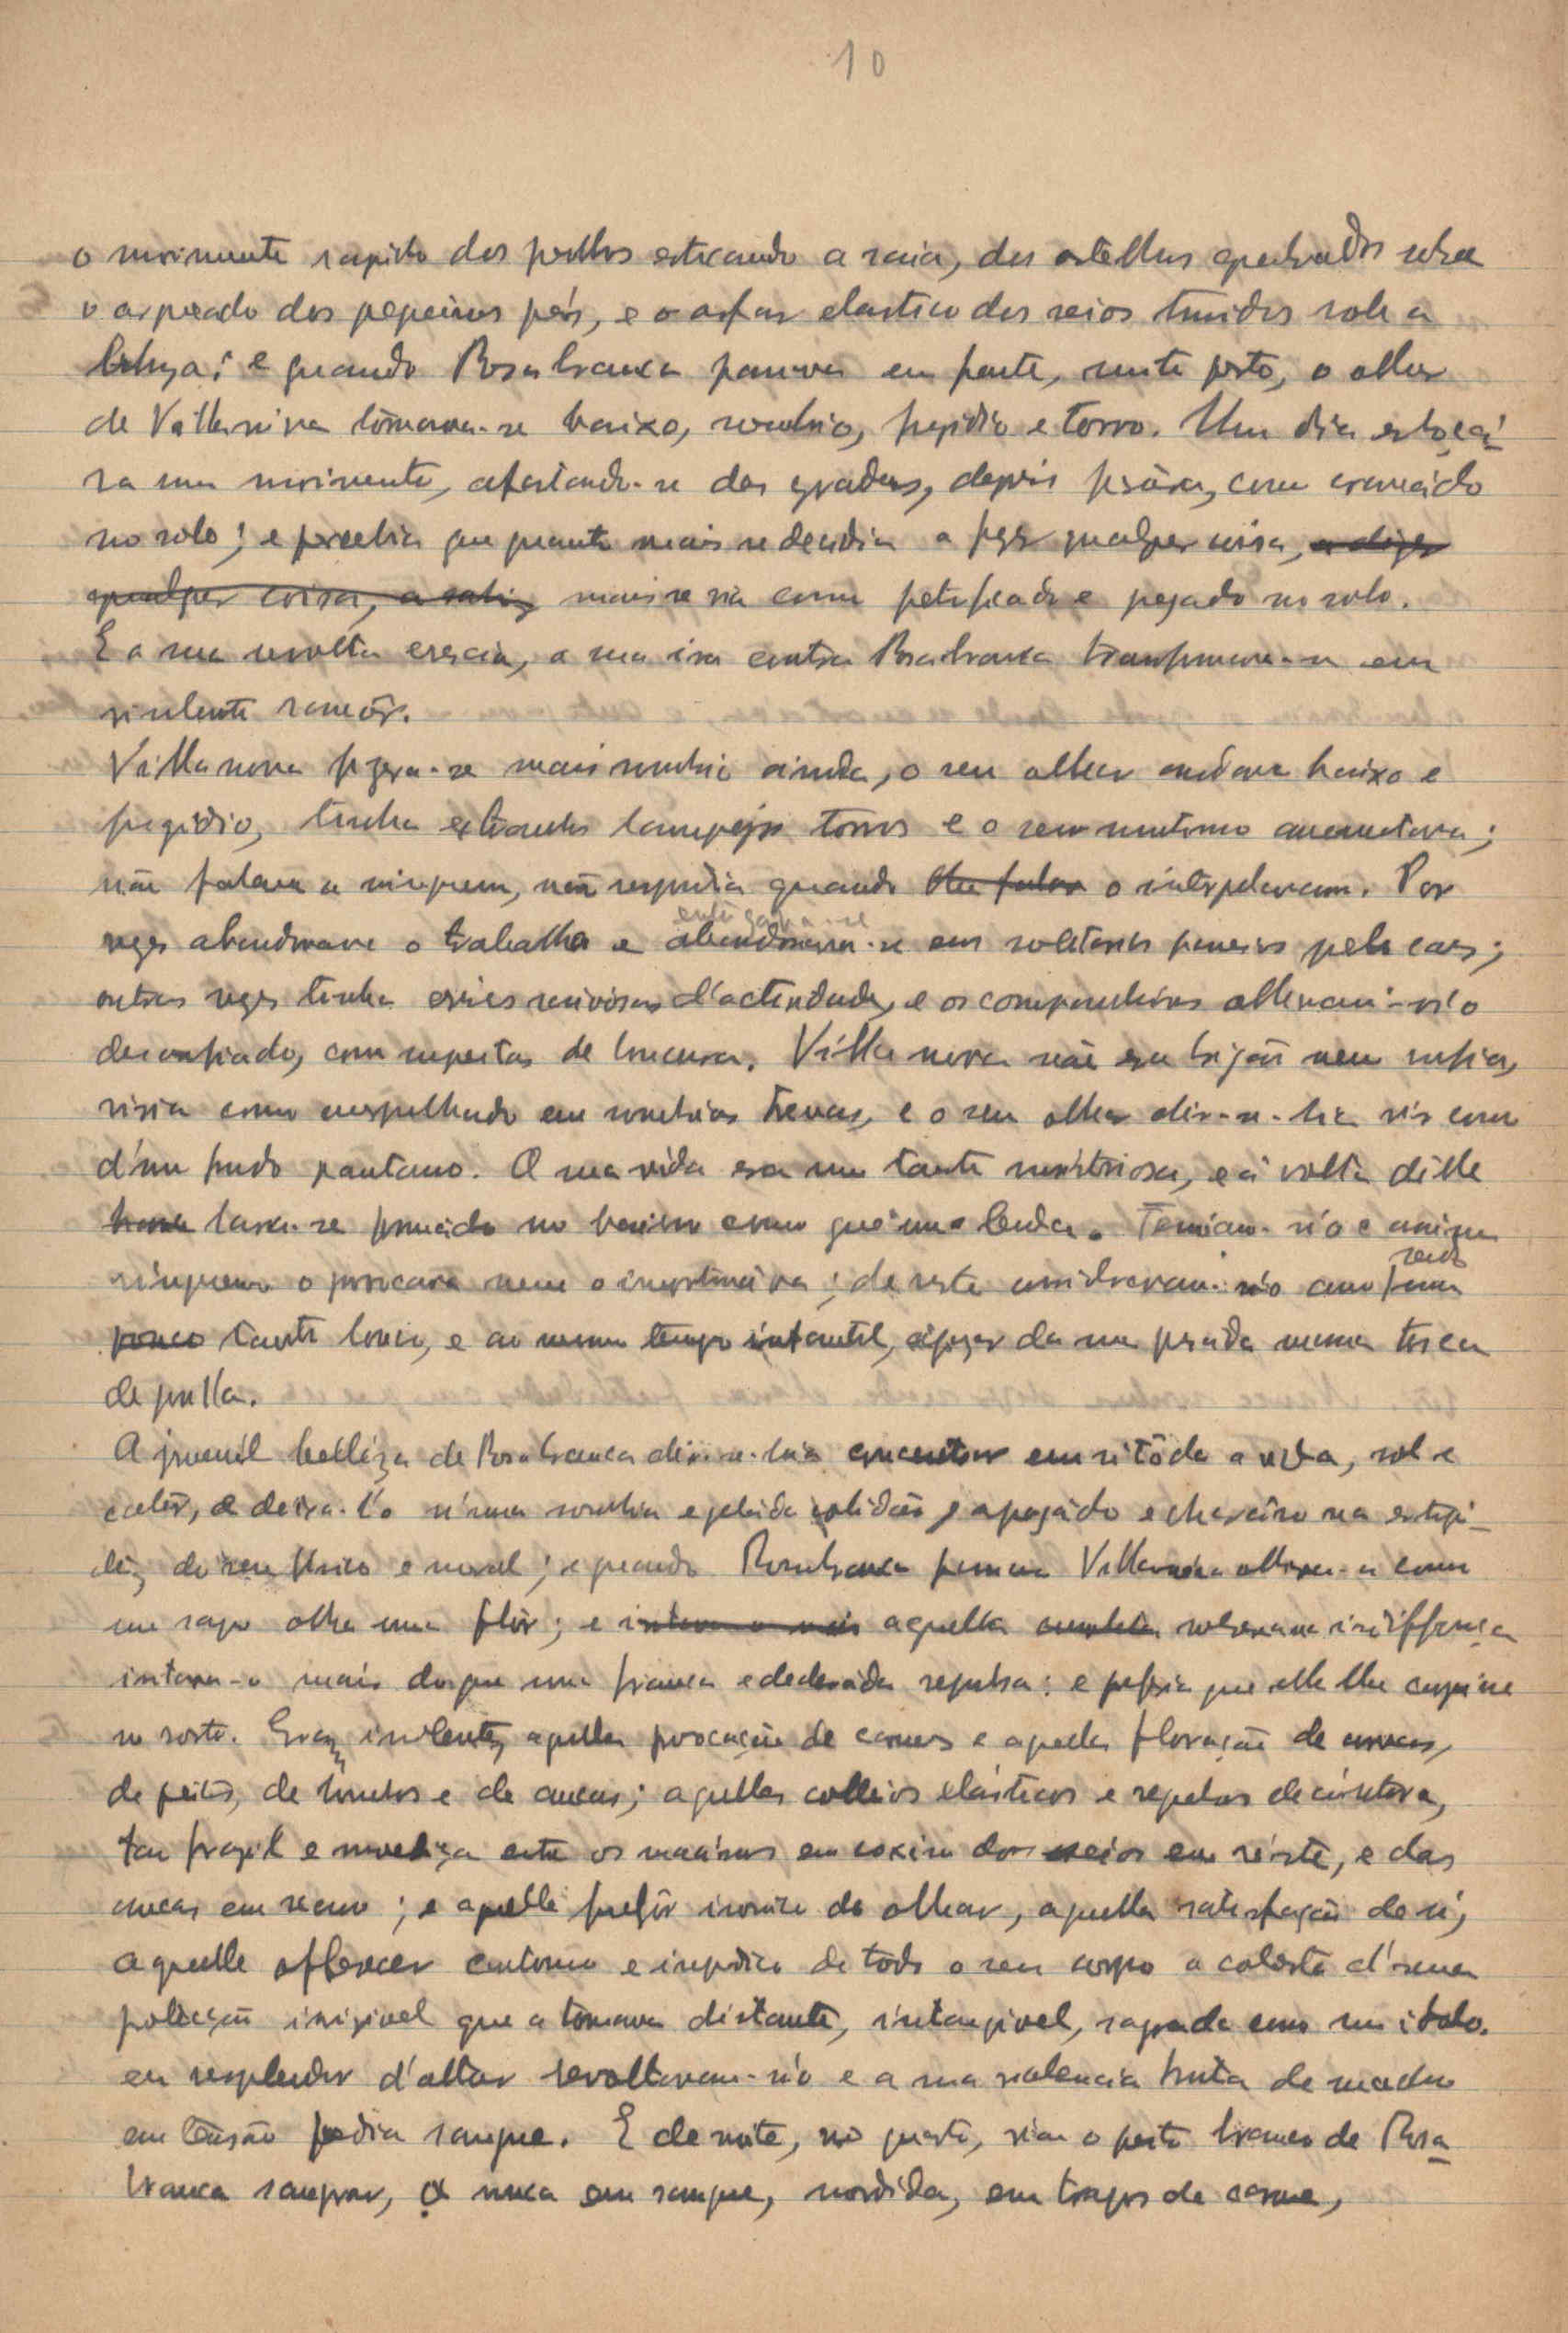 10
o movimento rapido dos joelhos esticando a saia, dos artelhos quebrados sobre
o arqueado dos pequeninos pés, e o arfar elastico dos seios tumidos sob a
blusa; e quando Rosabranca passava em frente, muito perto, o olhar
de Villanova tornava-se baixo, sombrio, fugidio e torvo. Um dia esboçá-
ra um movimento, afastando-se das grades, depois ficára, como cravado
no solo; e percebia que quanto mais se decidia a fazer qualquer coisa, a dizer
qualquer coisa, a sahir mais se via como petrificado e pegado no solo.
E a sua revolta crescia, a sua ira contra Rosabranca transformava-se em
virulento rancôr.
Villanova fizera-se mais sombrio ainda, o seu olhar andava baixo e
fugidio, tinha extranhos lampejos torvos e o seu mutismo augmentava;
não falava a ninguem, não respondia quando lhe falav o interpelavam. Por
vezes abandonava o trabalho e abandonava-se em solitarios passeios pelo caes;
entregava-se
outras vezes tinha crises raivosas d'actividade, e os companheiros olhavam-n'o
desconfiados, com suspeitas de loucura. Villanova não era brigão nem rufia,
vivia como mergulhado em sombrias trevas, e o seu olhar dir-se-hia vir como
d'um fundo pantano. A sua vida era um tanto mysteriosa, e á volta d'elle
havia tinha-se formado no bairro como que uma lenda. Temiam-n'o e
ninguem o provocava nem o importunava; de resto consideravam-n'o como um
sendo
pouco tanto louco, e ao mesmo tempo infantil, apezar da sua pesada massa tosca
de gorilla.
A juvenil belleza de Rosabranca dir-se-hia concentrar em si tôda a vida, sol e
calôr, e deixa-l'o n'uma sombria e gelida solidão, apagado e na estupi-
dez do seu fisico e moral; e quando Rosabranca passava Villanova olhava-a como
um sapo olha uma flôr; e aquella soberana indifferença
irritava-o mais do que uma franca e declarada repulsa: e preferia que ella lhe cuspisse
no rosto. Eram insolentes aquella provocação de carnes e aquella floração de curvas,
de peitos, de hombros e de ancas; aquelles colleios elásticos e da cintura,
tão fragil e movediça entre os macissos em coxim dos seios em riste, e das
ancas em recuo; e aquelle fulgôr ironico do olhar, aquella satisfação de si,
aquelle offerecer e impudico de todo o seu corpo a coberto d'uma
protecção invisivel que a tornava distante, intangivel, sagrada como um idolo
em resplendor d'altar revoltavam-n'o e a sua violencia bruta de macho
em tensão pedia sangue. E de noite, no quarto, via o peito branco de Rosa-
branca sangrar, a nuca em sangue, mordida, em trapos de carne,